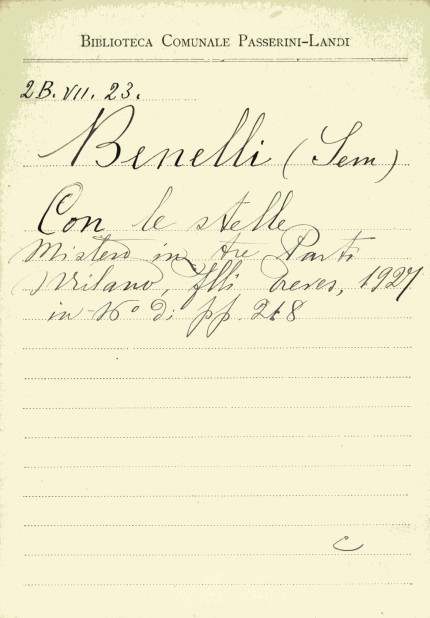 BIBLIOTECA COMUNALE PASSERINI-LANDI
2B. VII. 23.
Benelli (Sem)
Con le stelle
Mistero in tre Parti
Milano, Flli Treves, 1927
in 16° di pp. 218
C